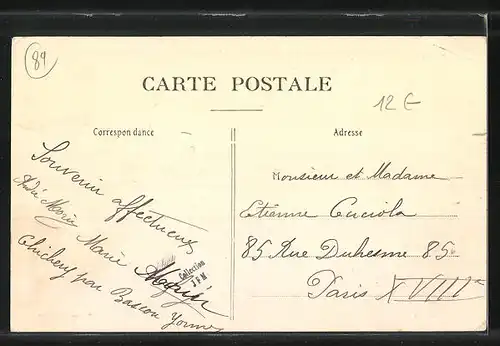 89
CARTE POSTALE
12 €
Correspondance
Adresse
Souvenir affectueux
André Marie Marie
Chichery par Bassou Yonne
Collection
J F M
Monsieur et Madame
Etienne Cuciola
85 Rue Duhesme 85
Paris XVIIIe